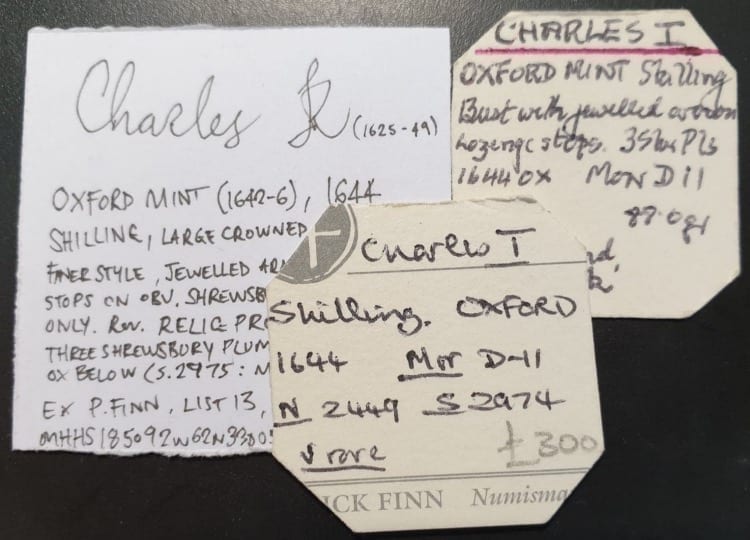 Charles R (1625-49)
OXFORD MINT (1642-6), 1644
SHILLING, LARGE CROWNED
FINER STYLE, JEWELLED AR
STOPS ON OBV. SHREWSB
ONLY. Rev. RELIG PR
THREE SHREWSBURY PLUM
OX BELOW (S.2975: N
EX P.FINN, LIST 13,
CHARLES I
OXFORD MINT Shilling
Bust with jewelled
Lozenge stops. 3 Shr Pls
1644 OX Mor D11
gr
Charles I
Shilling. OXFORD
1644 Mor D-11
N 2449 S 2974
v rare
£300
ICK FINN Numisma